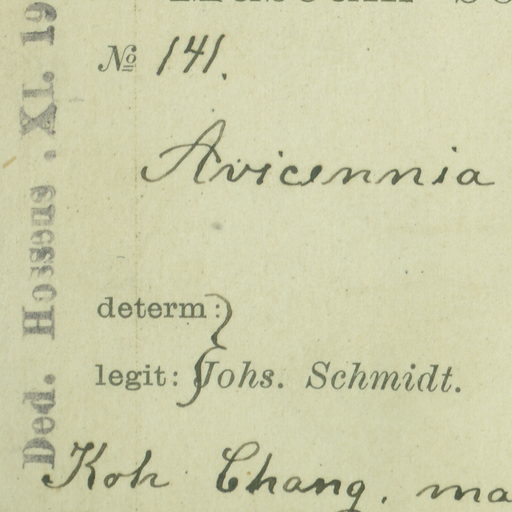 № 141.
Avicennia
determ:
legit: Johs. Schmidt.
Koh Chang. ma
Ded. Hosseus. XI. 19